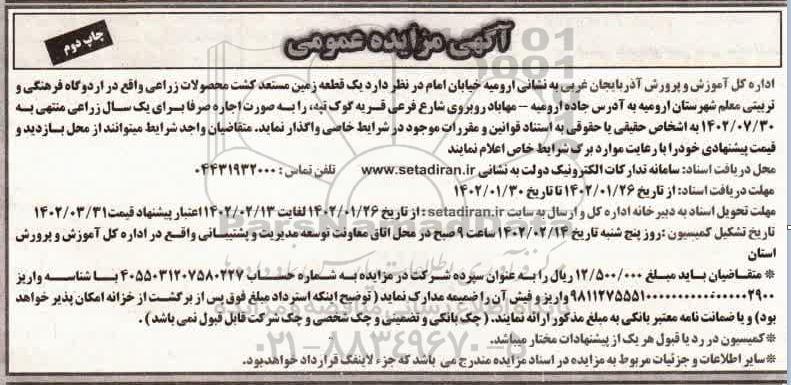 آگهی مزایده عمومی
چاپ دوم
اداره کل آموزش و پرورش آذربایجان غربی به نشانی ارومیه خیابان امام در نظر دارد یک قطعه زمین مستعد کشت محصولات زراعی واقع در اردوگاه فرهنگی و
تربیتی معلم شهرستان ارومیه به آدرس جاده ارومیه – مهاباد روبروی شارع فرعی قریه گوک تپه، را به صورت اجاره صرفا برای یک سال زراعی منتهی به
۱۴۰۲/۰۷/۳۰ به اشخاص حقیقی یا حقوقی به استناد قوانین و مقررات موجود در شرایط خاصی واگذار نماید. متقاضیان واجد شرایط میتوانند از محل بازدید و
قیمت پیشنهادی خود را با رعایت موارد برگ شرایط خاص اعلام نمایند
محل دریافت اسناد: سامانه تدارکات الکترونیک دولت به نشانی www.setadiran.ir تلفن تماس: ۰۴۴۳۱۹۳۲۰۰۰
مهلت دریافت اسناد: از تاریخ ۱۴۰۲/۰۱/۲۶ تا تاریخ ۱۴۰۲/۰۱/۳۰
مهلت تحویل اسناد به دبیرخانه اداره کل و ارسال به سایت setadiran.ir: از تاریخ ۱۴۰۲/۰۱/۲۶ لغایت ۱۴۰۲/۰۲/۱۳ اعتبار پیشنهاد قیمت ۱۴۰۲/۰۳/۳۱
تاریخ تشکیل کمیسیون: روز پنج شنبه تاریخ ۱۴۰۲/۰۲/۱۴ ساعت ۹ صبح در محل اتاق معاونت توسعه مدیریت و پشتیبانی واقع در اداره کل آموزش و پرورش
استان
* متقاضیان باید مبلغ ۱۲/۵۰۰/۰۰۰ ریال را به عنوان سپرده شرکت در مزایده به شماره حساب ۴۰۵۵۰۳۱۲۰۷۵۸۰۲۲۷ با شناسه واریز
واریز و فیش آن را ضمیمه مدارک نماید (توضیح اینکه استرداد مبلغ فوق پس از برگشت از خزانه امکان پذیر خواهد
بود) و یا ضمانت نامه معتبر بانکی به مبلغ مذکور ارائه نمایند. (چک بانکی و تضمینی و چک شخصی و چک شرکت قابل قبول نمی باشد).
*کمیسیون در رد یا قبول هر یک از پیشنهادات مختار میباشد.
*سایر اطلاعات و جزئیات مربوط به مزایده در اسناد مزایده مندرج می باشد که جزء لاینفک قرارداد خواهدبود.
۰۲۱-۸۸۳۴۹۶۷۰-۵